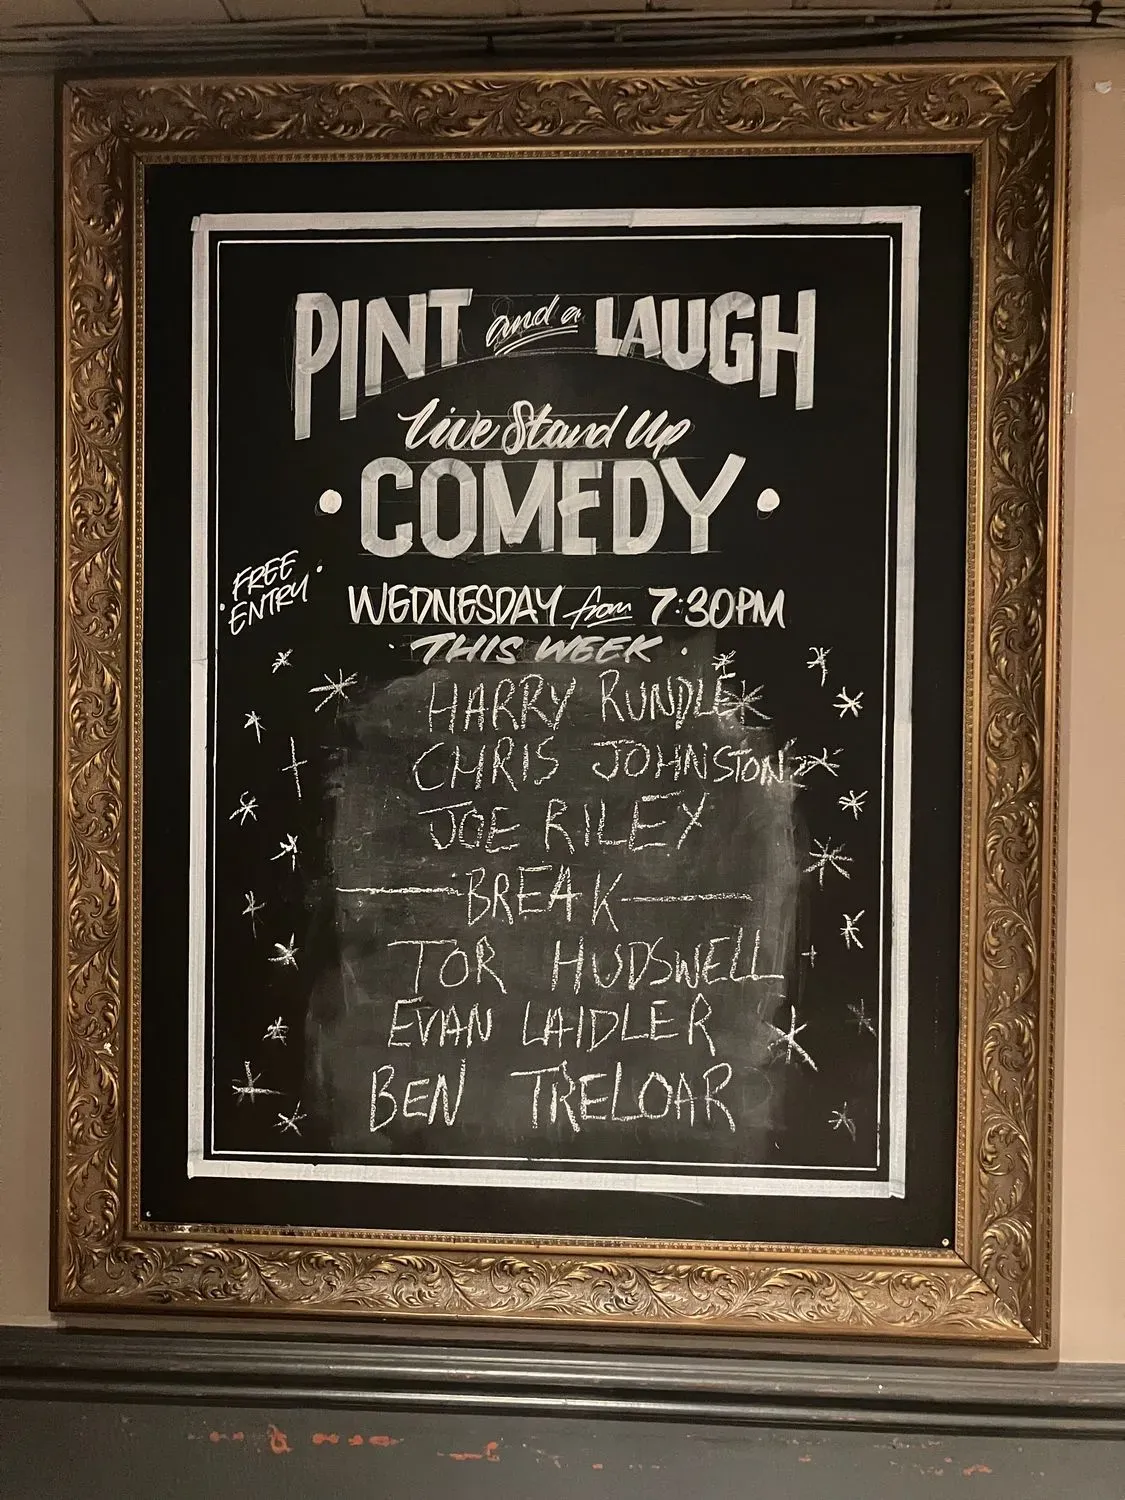 PINT and a LAUGH
Live Stand Up
COMEDY
FREE
ENTRY
WEDNESDAY from 7:30PM
THIS WEEK
HARRY RUNDLE
CHRIS JOHNSTON
JOE RILEY
BREAK
TOR HUDSWELL
EVAN LAIDLER
BEN TRELOAR